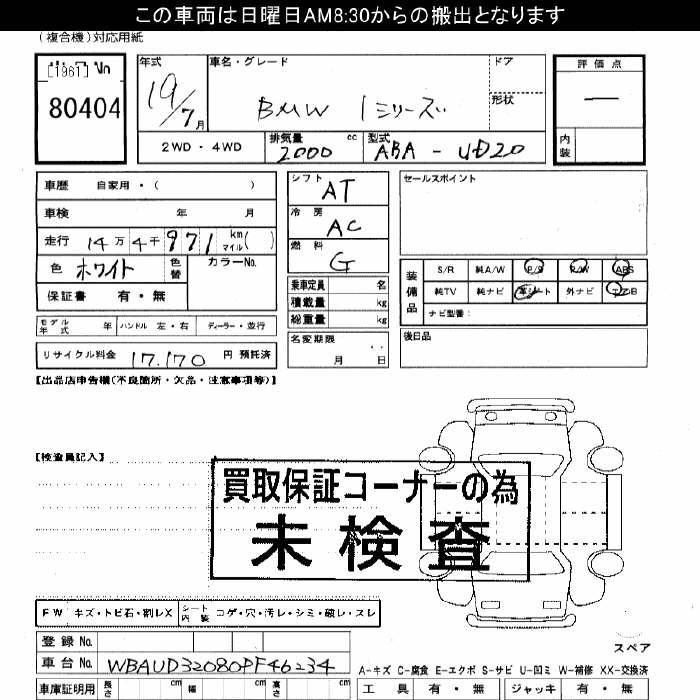 この車両は日曜日AM8:30からの搬出となります
(複合機)対応用紙
[1961] Vn
80404
年式
19/7月
車名・グレード
BMW 1シリーズ
ドア
形状
評価点
—
内装
2WD・4WD
排気量 2000 cc
型式 ABA-UD20
車歴 自家用・( )
車検 年 月
走行 14万4千971 km マイル( )
色 ホワイト 色替 カラーNo.
保証書 有・無
シフト AT
冷房 AC
燃料 G
乗車定員 名
積載量 kg
総重量 kg
名変期限
月 日
セールスポイント
装備品
S/R 純A/W P/S P/W ABS
純TV 純ナビ 革シート 外ナビ エアB
ナビ型番:
後日品
モデル年式 年 ハンドル 左・右 ディーラー・並行
リサイクル料金 17,170 円 預託済
【出品店申告欄(不良箇所・欠品・注意事項等)】
【検査員記入】
買取保証コーナーの為
未検査
FW キズ・トビ石・割レX シート内装 コゲ・穴・汚レ・シミ・破レ・スレ
スペア
登録No.
車台No. WBAUD32080PF46234
A-キズ C-腐食 E-エクボ S-サビ U-凹ミ W-補修 XX-交換済
車庫証明用 長さ cm 幅 cm 高さ cm
工具 有・無 ジャッキ 有・無